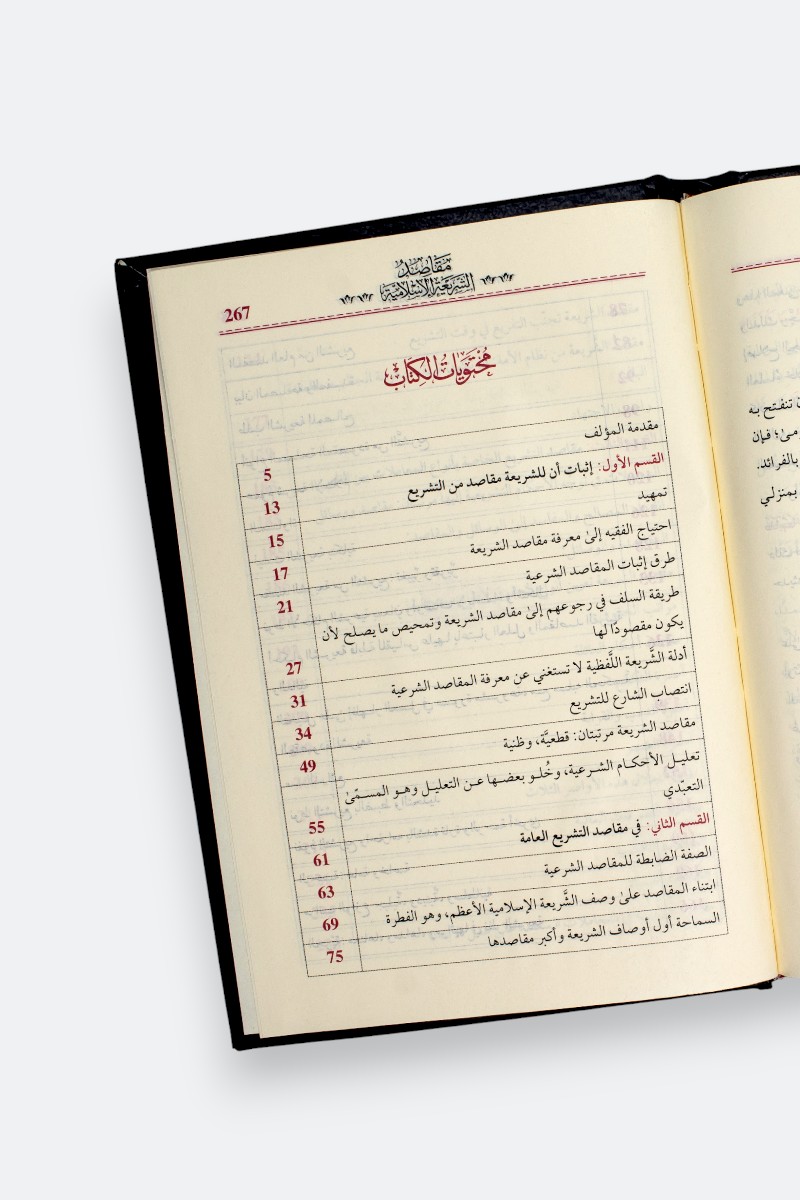 مَقَاصِدُ
الشَّرِيعَةِ الإِسْلَامِيَّةِ
267
مُحْتَوَيَاتُ الكِتَابِ
مقدمة المؤلف 5
القسم الأول: إثبات أن للشريعة مقاصد من التشريع 13
تمهيد 15
احتياج الفقيه إلىٰ معرفة مقاصد الشريعة 17
طرق إثبات المقاصد الشرعية 21
طريقة السلف في رجوعهم إلىٰ مقاصد الشريعة وتمحيص ما يصلح لأن
يكون مقصودًا لها 27
أدلة الشَّريعة اللَّفظية لا تستغني عن معرفة المقاصد الشرعية 31
انتصاب الشارع للتشريع 34
مقاصد الشريعة مرتبتان: قطعيَّة، وظنية 49
تعليل الأحكام الشرعية، وخُلو بعضها عن التعليل وهو المسمّىٰ
التعبّدي 55
القسم الثاني: في مقاصد التشريع العامة 61
الصفة الضابطة للمقاصد الشرعية 63
ابتناء المقاصد علىٰ وصف الشَّريعة الإسلامية الأعظم، وهو الفطرة 69
السماحة أول أوصاف الشريعة وأكبر مقاصدها 75
تنفتح به
فإن
بالفرائد.
بمنزلي